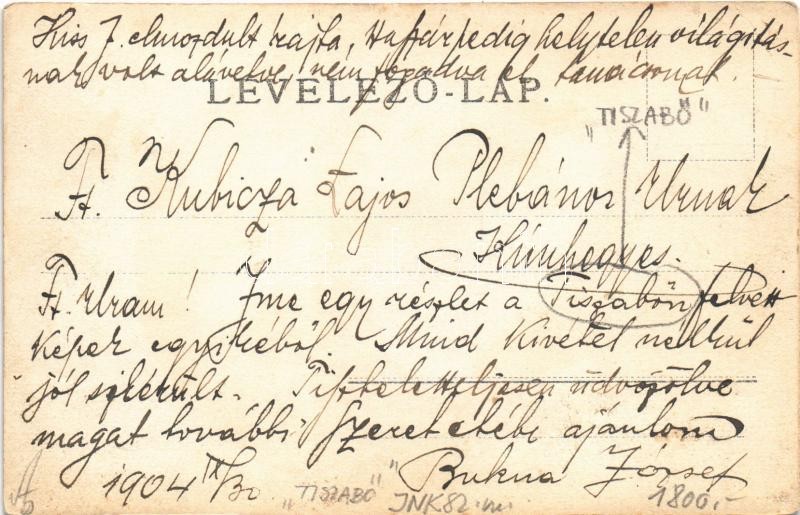 Kiss J. elmozdult rajta, pedig helytelen világitás-
nak volt alávetve, nem fogadva el tanácsomat.
LEVELEZŐ-LAP.
"TISZABŐ"
Ft. Kubicza Lajos Plebános Urnak
Kúnhegyes.
Ft. Uram! Ime egy részlet a Tiszabőn felvett
képek egyikéből. Mind kivétel nélkül
jól sikerült. Tiszteletteljesen üdvözölve
magat további szeretetébe ajánlom
1904 IX/30 József
"TISZABŐ" JNKSZ.m. 1800.-